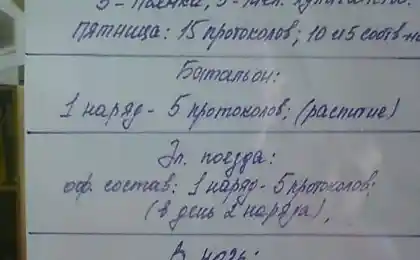 Пятница: 15 протоколов; 10 и 5 соотв-но
Батальон:
1 наряд - 5 протоколов; (распитие)
Эл. поезда:
оф. состав: 1 наряд - 5 протоколов;
(в день 2 наряда),
В ночь: